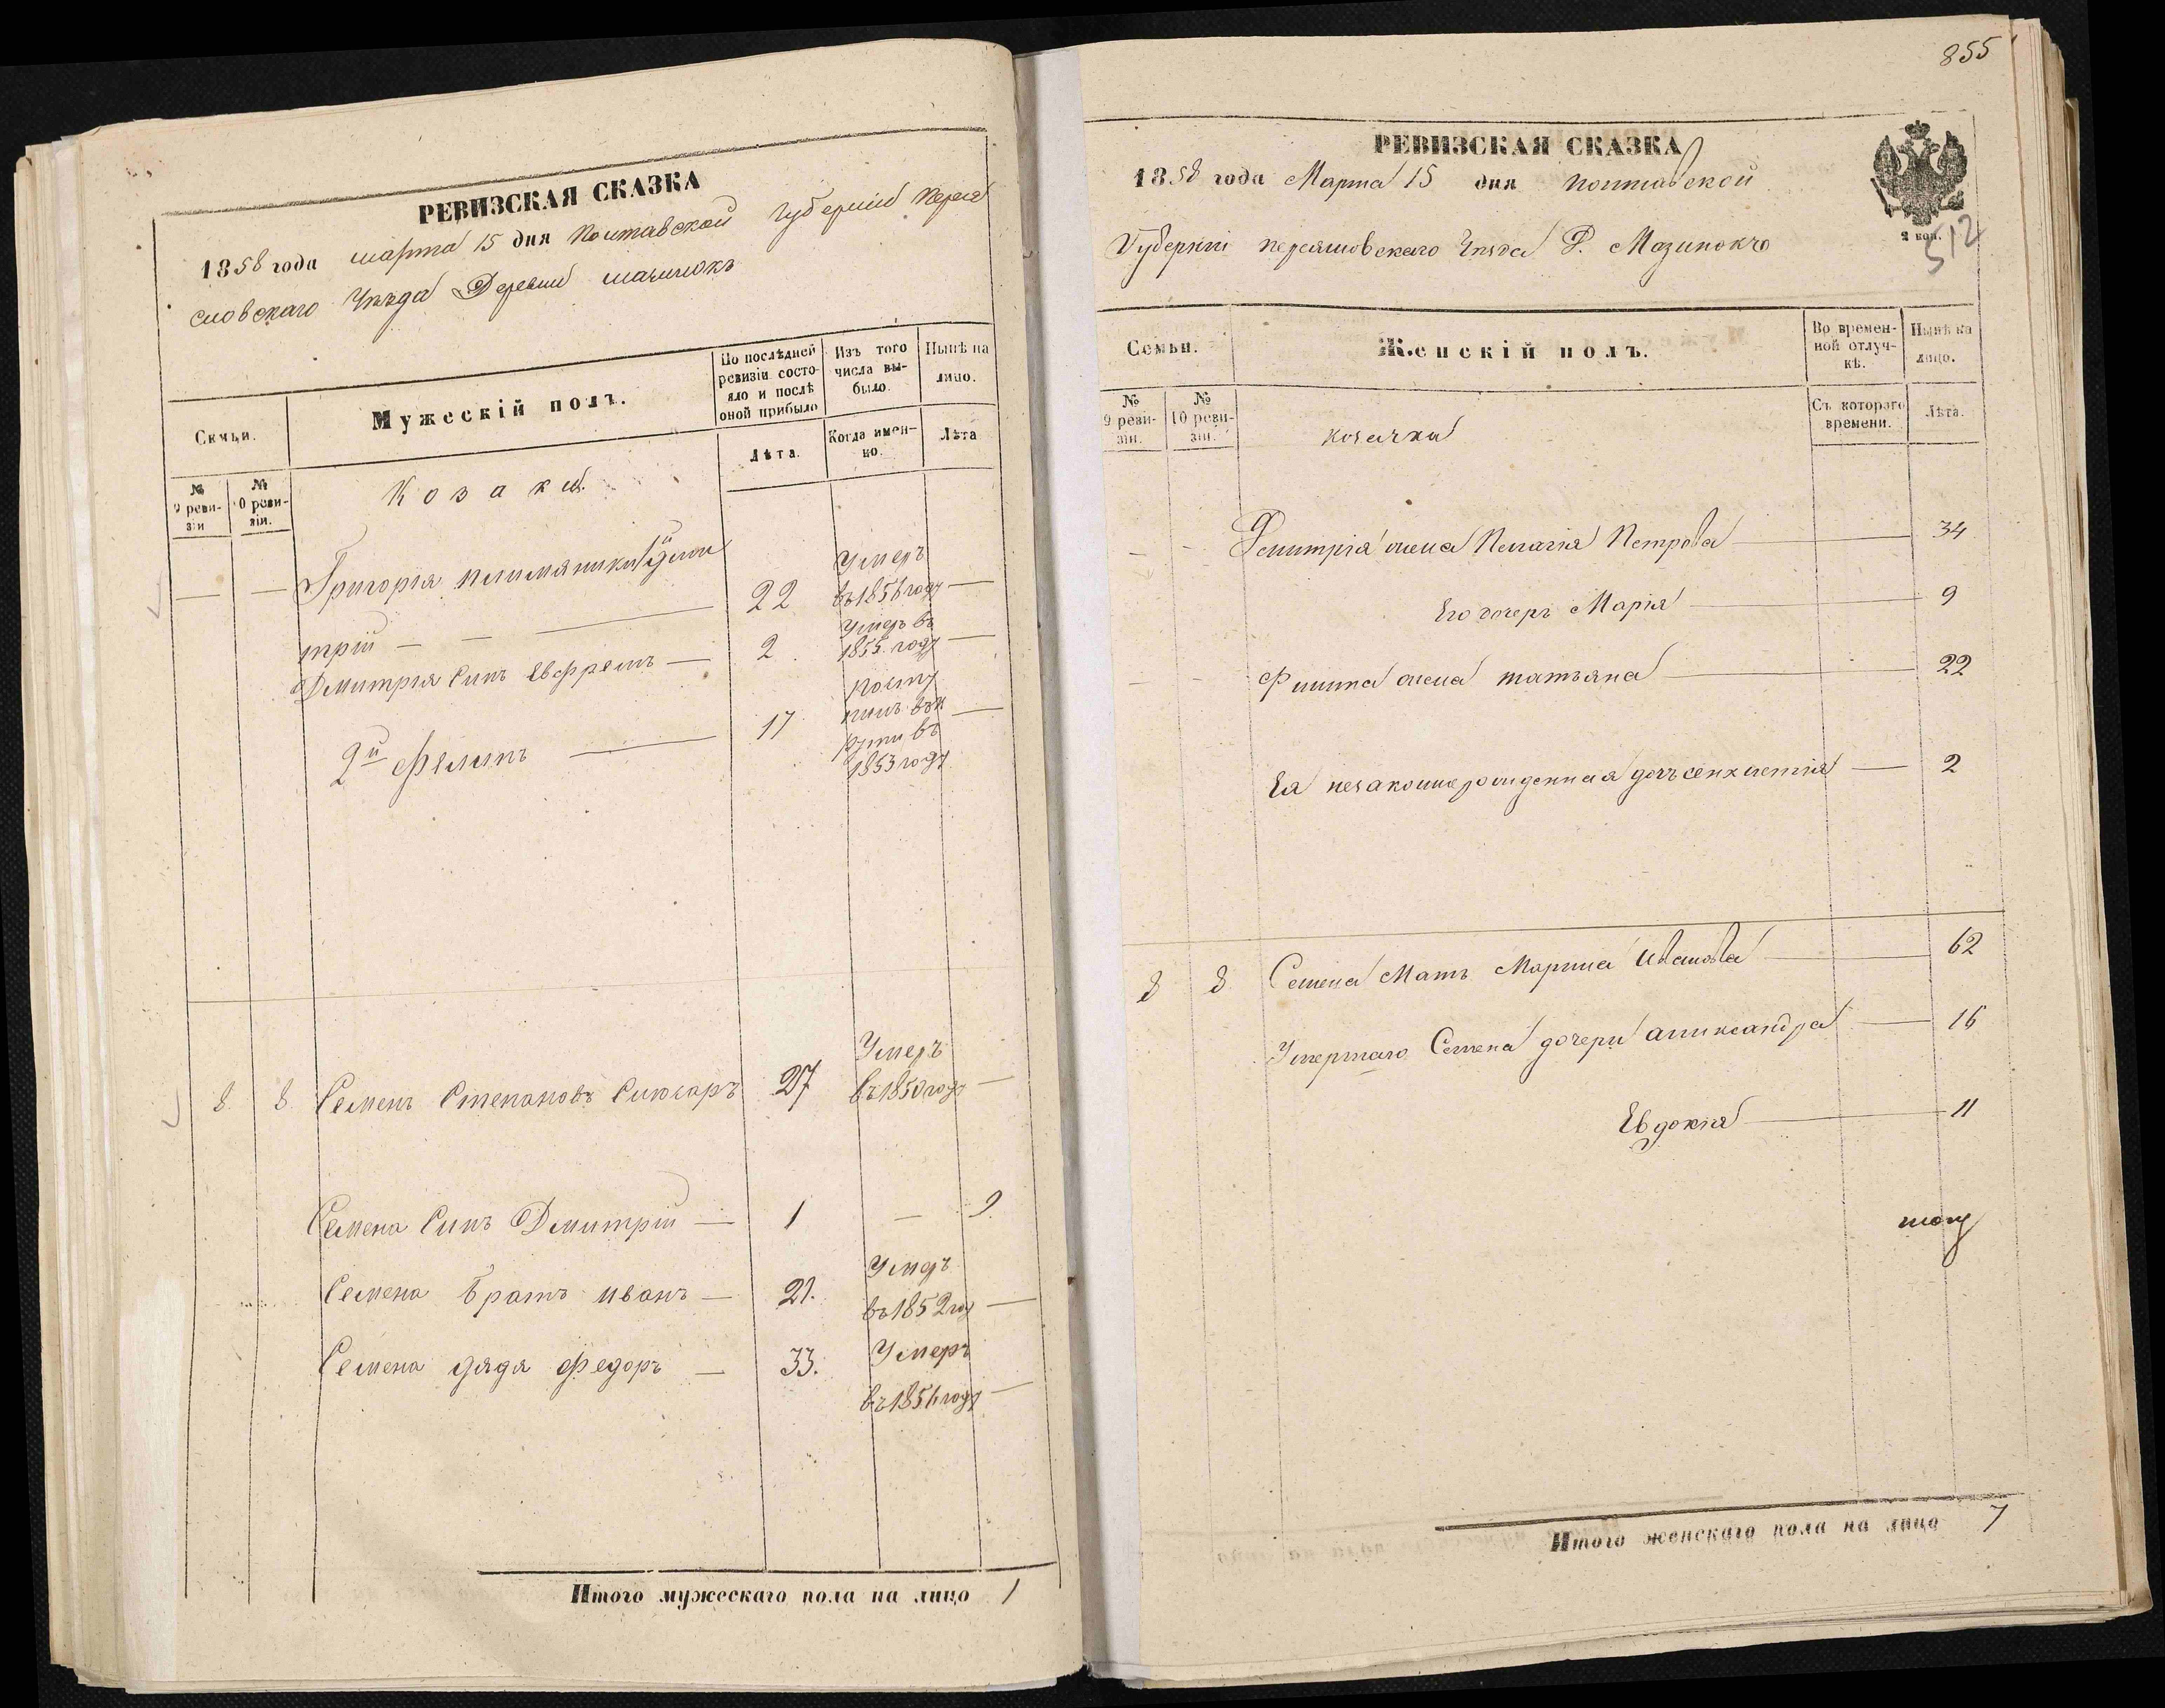 РЕВИЗСКАЯ СКАЗКА
1858 года марта 15 дня Полтавской Губерніи Перея
словскаго Уѣзда Деревни
Семьи.
Мужескій полъ.
По послѣдней ревизіи состояло и послѣ оной прибыло
Изъ того числа выбыло.
Нынѣ на лицо.
№ 9 ревизіи
№ 10 ревизіи.
Козаки
Лѣта.
Когда именно.
Лѣта
— — Григорія племяники Дми
трій — — 22 Умеръ въ 1856 году —
Дмитрія Сынъ Евфремъ — 2 Умеръ въ 1855 году —
2й Филипъ — 17 въ 1853 году —
8 8 Семенъ Степановъ Слюсаръ 27 Умеръ въ 1850 году —
Семена Сынъ Дмитрій — 1 — 9
Семена братъ иванъ — 21. Умеръ въ 1852 год —
Семена дядя Федоръ — 33. Умеръ въ 1856 году —
Итого мужескаго пола на лицо 1
855
РЕВИЗСКАЯ СКАЗКА
1858 года Марта 15 дня полтавской
2 коп.
512
Губерніи переясловскаго Уѣзда Д.
Семьи.
Женскій полъ.
Во временной отлучкѣ.
Нынѣ на лицо.
№ 9 ревизіи.
№ 10 ревизіи.
козачки
Съ котораго времени.
Лѣта.
- - Дмитрія жена Пелагія Петрова — 34
Его дочерь Марія — 9
- - Филипа жена татьяна — 22
Ея незаконнорожденная дочь — 2
8 8 Семена Мать Марина Иванова — 62
Умершаго Семена дочери александра — 16
Евдокія — 11
Итого женскаго пола на лицо 7